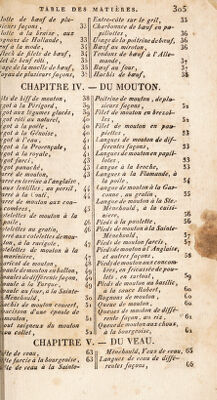 TABLE DES MATIÈRES. 303
lote de bœuf de plu-
sieurs façons, 33
lotte à la braise, aux
ognons de Hollande,
rof à la mode,
eack de filets de bœuf.
let de bœuf rôti,
sage de la moelle de bœuf.
oyau de plusieurs façons, 35
Entre-côte sur le gril, 35
Charbonnée de bœuf en pa-
pillotes, 36
Usage de la poitrine de bœuf,
Bœuf au miroton, 36
Tendons de bœuf à l'Alle-
mande,
Bœuf au four,
Hachis de bœuf, 38
CHAPITRE IV. — DU MOUTON.
its de biff de mouton, 38
igot à la Périgord,
igot aux légumes glacés, 39
igot à l'anglaise, 40
igot à la régale, 40
igot à la Génoise, 41
à l'eau,
à la Provençale,
igot à la royale,
farci,
igot panaché,
rré de mouton,
rré en terrine à l'anglaise
aux lentilles, au persil,
à la Conti,
de mouton aux con-
combres
telettes de mouton à la
poêle,
telettes au gratin,
carré aux côtelettes de mou-
ton, à la ravigote,
telettes de mouton à la
marinière,
aricot de mouton,
paule de mouton au ballon,
paules de différentes façons, 49
paule à la Turque,
paule au four, à la Sainte-
Ménehould, 50
achis de mouton couvert,
ucisson d'une épaule de
mouton, 51
out saigneux du mouton
ou collet,
Poitrine de mouton, de plu-
sieurs façons,
Filet de mouton en brezol-
les,
Filet de mouton en pau-
piettes, 53
Langues de mouton de dif-
férentes façons, 53
Langues de mouton en papil-
lotes,
Langue à la broche,
Langues à la Flamande, à
la poêle
Langue de mouton à la Gas-
conne, au gratin, 55
Langues de mouton à la Ste-
Ménehould, à la cuisi-
nière, 56
Pieds à la poulette, 56
Pieds de mouton à la Sainte-
Ménehould,
Pieds de mouton farcis, 57
Pieds de mouton à l'Anglaise,
et autres façons, 58
Pieds de mouton aux concom-
bres, en fricassée de pou-
lets, en surtout,
Pieds de mouton au basilic,
à la sauce Robert, 60
Rognons de mouton,
Queue de mouton,
Queues de mouton de diffé-
rente façon, au riz,
Queue de mouton aux choux,
à la bourgeoise, 62
CHAPITRE V. — DU VEAU.
ête de veau, 63
ête farcie à la bourgeoise, 64
ête de veau à la Sainte-
Ménehould, Yeux de veau, 65
Langues de veau de diffé-
rentes façons, 66